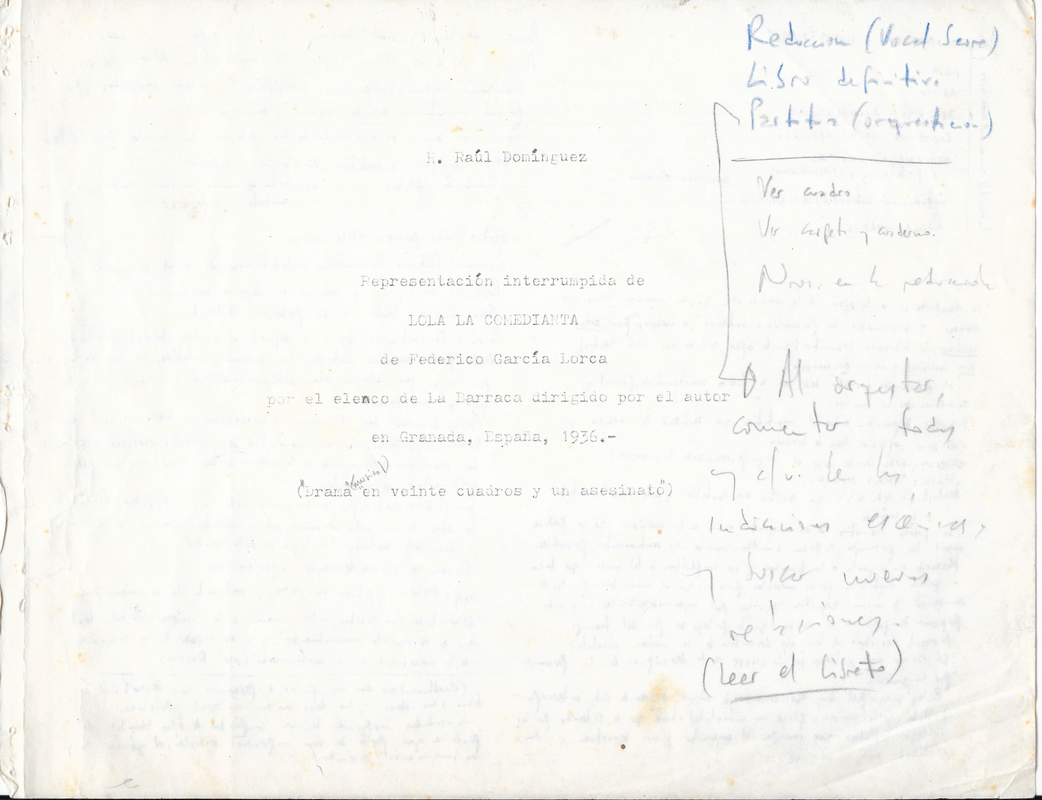 Reducción (Vocal Score)
Libro definitivo
Partitura (orquestación)
H. Raúl Domínguez
Ver cuadro
Ver carpeta y cuaderno.
Representación interrumpida de
LOLA LA COMEDIANTA
de Federico García Lorca
por el elenco de La Barraca dirigido por el autor
en Granada, España, 1936.-
("Drama "en veinte cuadros y un asesinato")
Al orquestar,
comentar
y c/u. de las
indicaciones escénicas
y buscar nuevas
relaciones
(Leer el libreto)